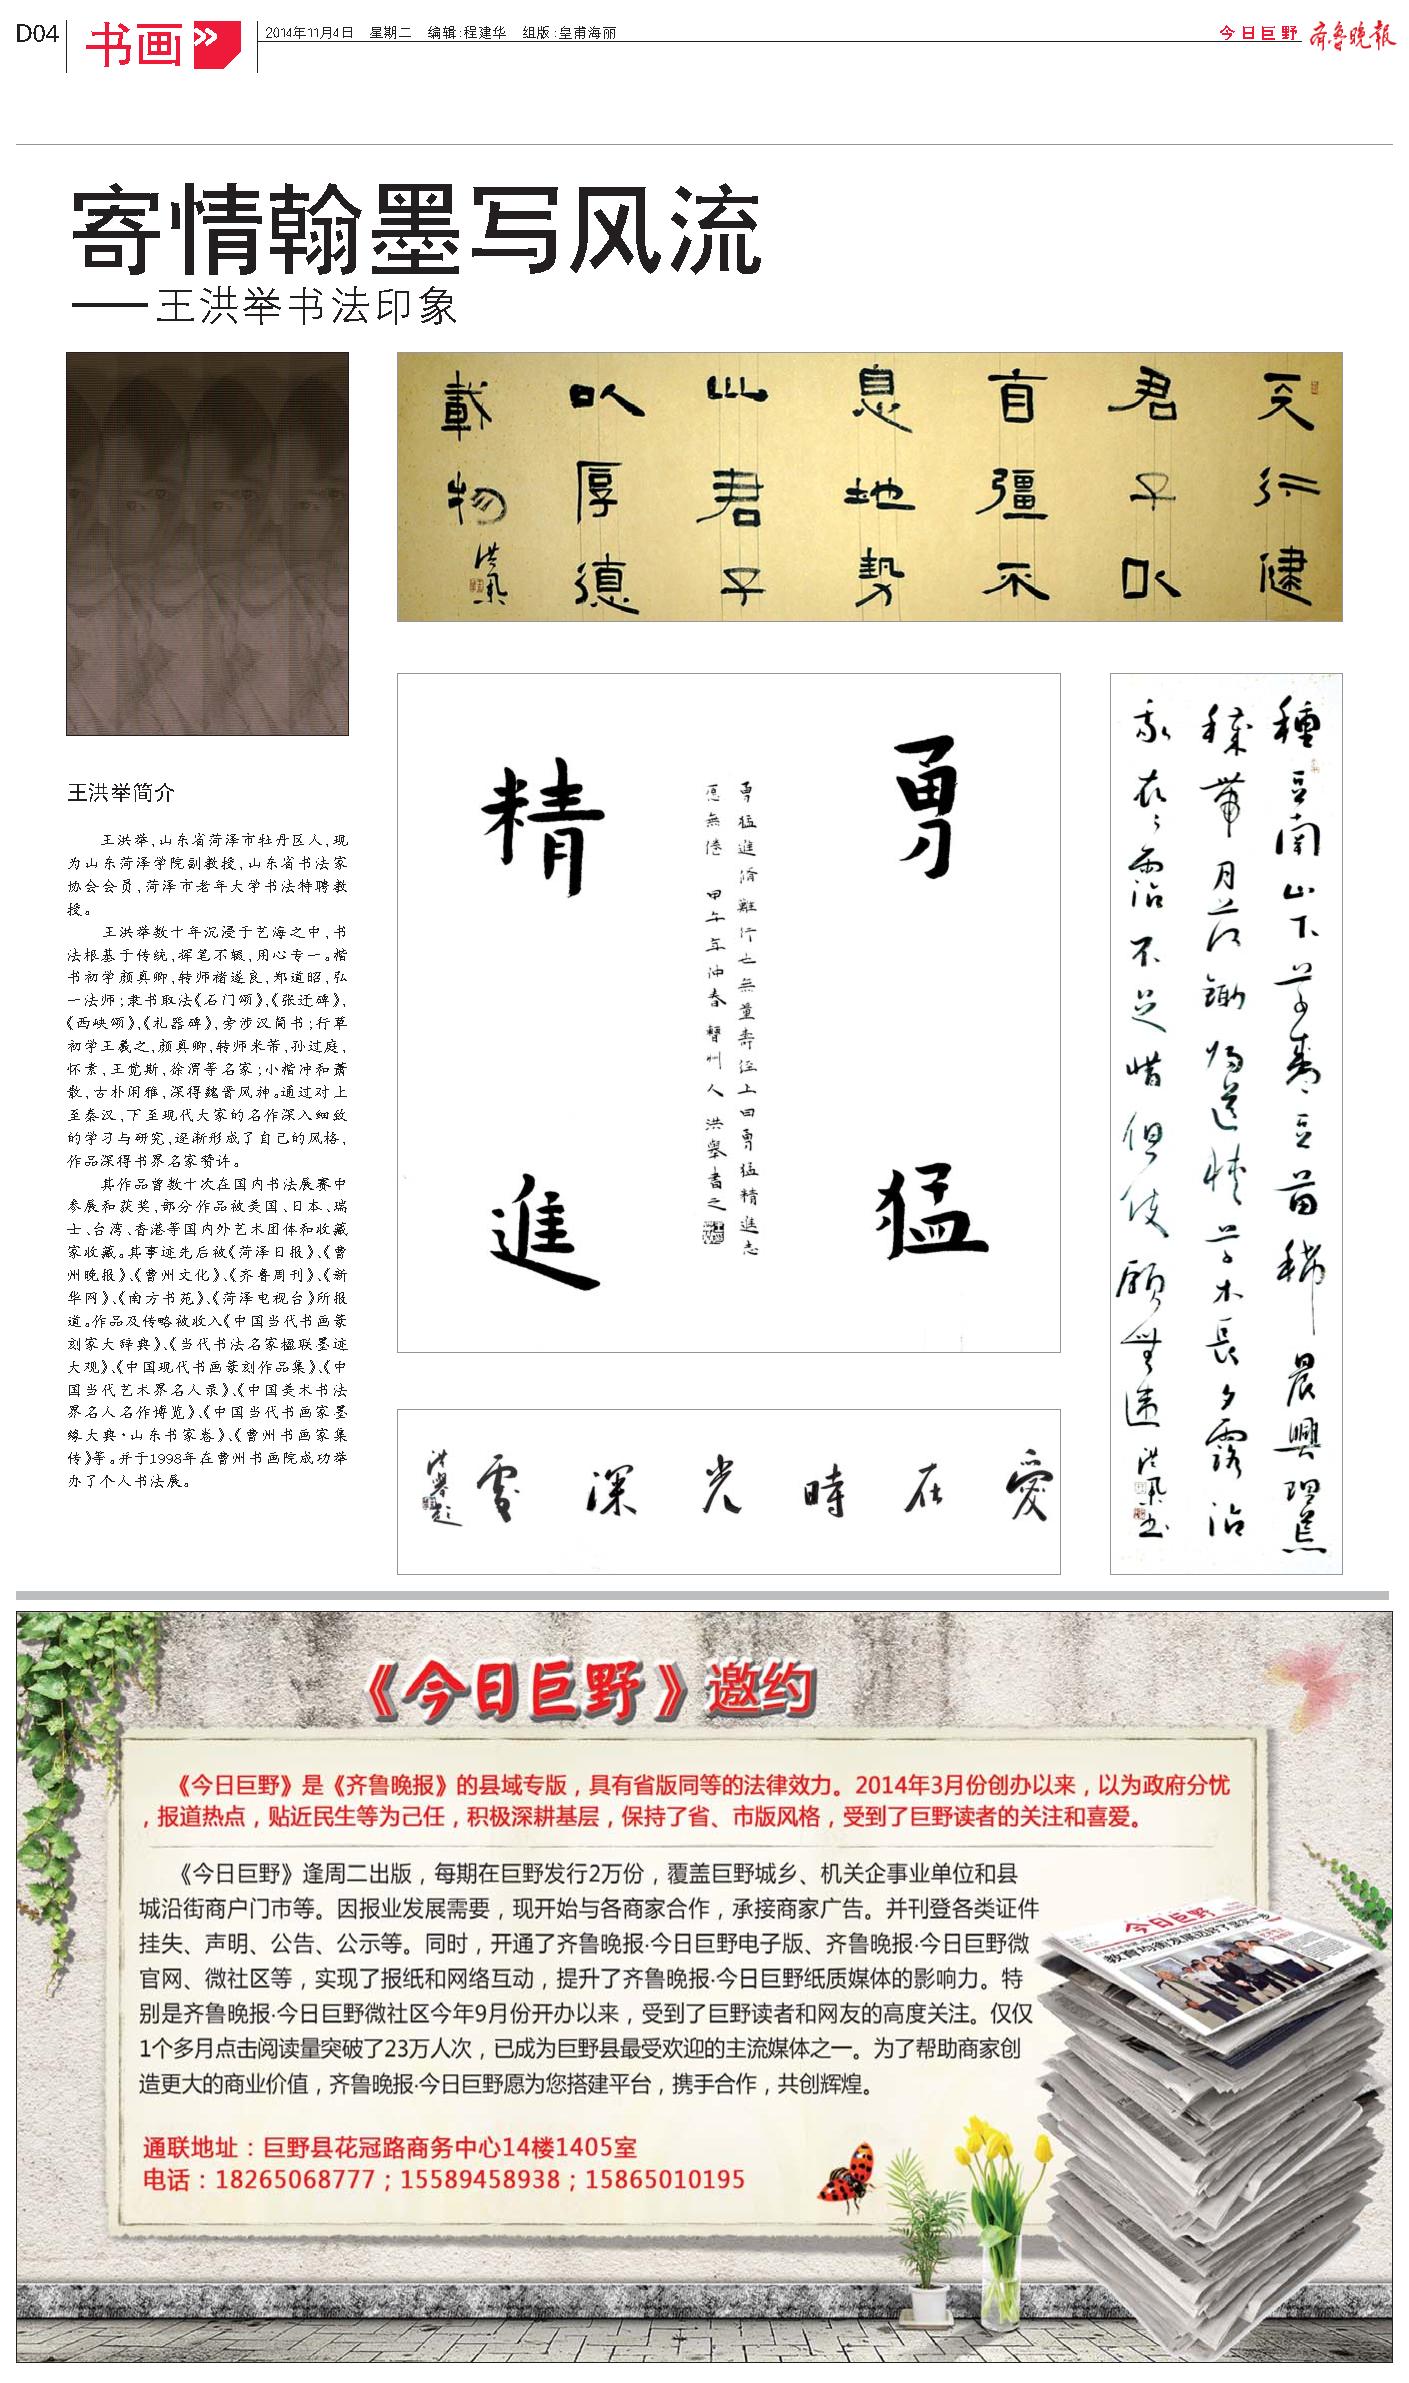 D04
书画
2014年11月4日 星期二 编辑:程建华 组版:皇甫海丽
今日巨野 齐鲁晚报
寄情翰墨写风流
——王洪举书法印象
天行健
君子以
自彊不
息地势
山君子
以厚德
载物
王洪举简介
王洪举,山东省菏泽市牡丹区人,现
为山东菏泽学院副教授,山东省书法家
协会会员,菏泽市老年大学书法特聘教
授。
王洪举数十年沉浸于艺海之中,书
法根基于传统,挥笔不辍,用心专一。楷
书初学颜真卿,转师褚遂良,郑道昭,弘
一法师;隶书取法《石门颂》,《张迁碑》,
《西峡颂》,《礼器碑》,旁涉汉简书;行草
初学王羲之,颜真卿,转师米芾,孙过庭,
怀素,王觉斯,徐渭等名家;小楷冲和萧
散,古朴闲雅,深得魏晋风神。通过对上
至秦汉,下至现代大家的名作深入细致
的学习与研究,逐渐形成了自己的风格,
作品深得书界名家赞许。
其作品曾数十次在国内书法展赛中
参展和获奖、部分作品被美国、日本、瑞
士、台湾、香港等国内外艺术团体和收藏
家收藏。其事迹先后被《菏泽日报》、《曹
州晚报》、《曹州文化》、《齐鲁周刊》、《新
华网》、《南方书苑》、《菏泽电视台》所报
道。作品及传略被收入《中国当代书画篆
刻家大辞典》、《当代书法名家楹联墨迹
大观》、《中国现代书画篆刻作品集》、《中
国当代艺术界名人录》、《中国美术书法
界名人名作博览》、《中国当代书画家墨
缘大典·山东书家卷》、《曹州书画家集
传》等。并于1998年在曹州书画院成功举
办了个人书法展。
勇猛
精進
勇猛進脩難行也無量壽經上曰勇猛精進志
愿無倦 甲午年仲春 曹州人 洪舉書之
種豆南山下草盛豆苗稀晨興理荒
穢帶月荷鋤歸道狹草木長夕露沾
我衣衣露沾不足惜但使願無違
愛在時光深處
洪舉題
《今日巨野》邀约
《今日巨野》是《齐鲁晚报》的县域专版，具有省版同等的法律效力。2014年3月份创办以来，以为政府分忧
，报道热点，贴近民生等为己任，积极深耕基层，保持了省、市版风格，受到了巨野读者的关注和喜爱。
《今日巨野》逢周二出版，每期在巨野发行2万份，覆盖巨野城乡、机关企事业单位和县
城沿街商户门市等。因报业发展需要，现开始与各商家合作，承接商家广告。并刊登各类证件
挂失、声明、公告、公示等。同时，开通了齐鲁晚报·今日巨野电子版、齐鲁晚报·今日巨野微
官网、微社区等，实现了报纸和网络互动，提升了齐鲁晚报·今日巨野纸质媒体的影响力。特
别是齐鲁晚报·今日巨野微社区今年9月份开办以来，受到了巨野读者和网友的高度关注。仅仅
1个多月点击阅读量突破了23万人次，已成为巨野县最受欢迎的主流媒体之一。为了帮助商家创
造更大的商业价值，齐鲁晚报·今日巨野愿为您搭建平台，携手合作，共创辉煌。
通联地址：巨野县花冠路商务中心14楼1405室
电话：18265068777；15589458938；15865010195
今日巨野